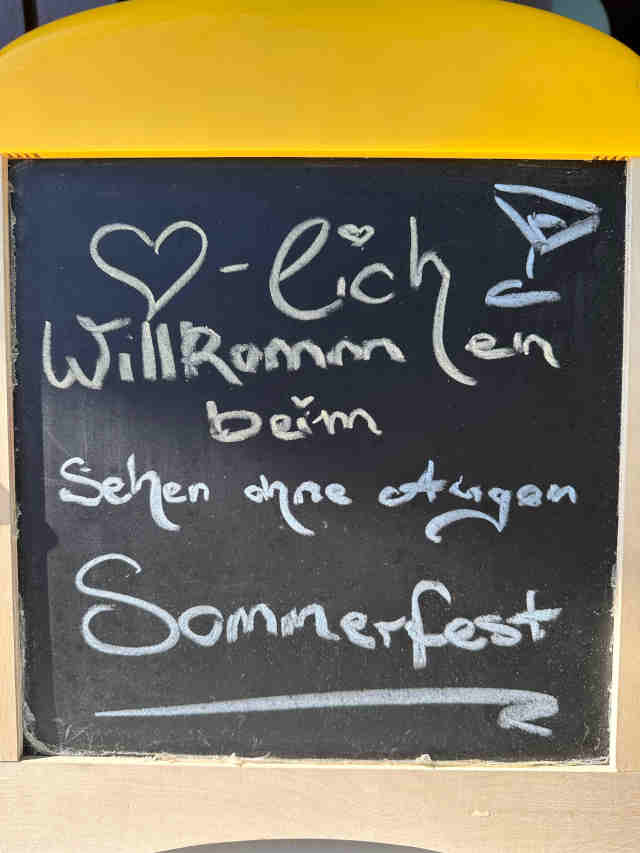 ♡-lich
Willkommen
beim
Sehen ohne Augen
Sommerfest